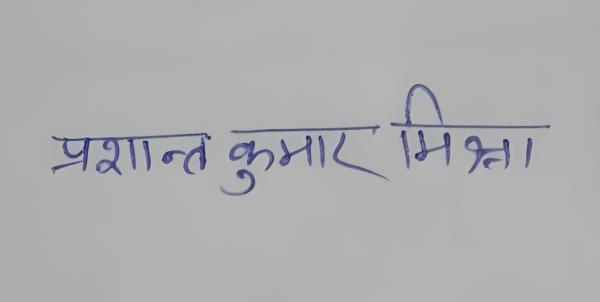 प्रशान्त कुमार मिश्रा